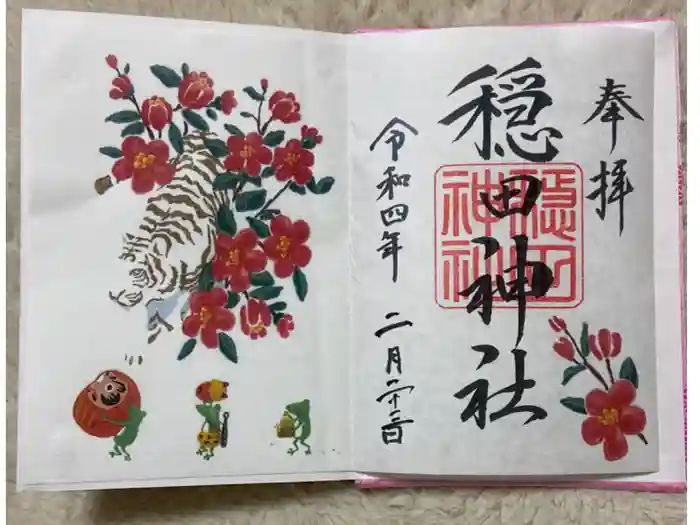 奉拝
穏田神社
令和四年 二月
穏田
神社